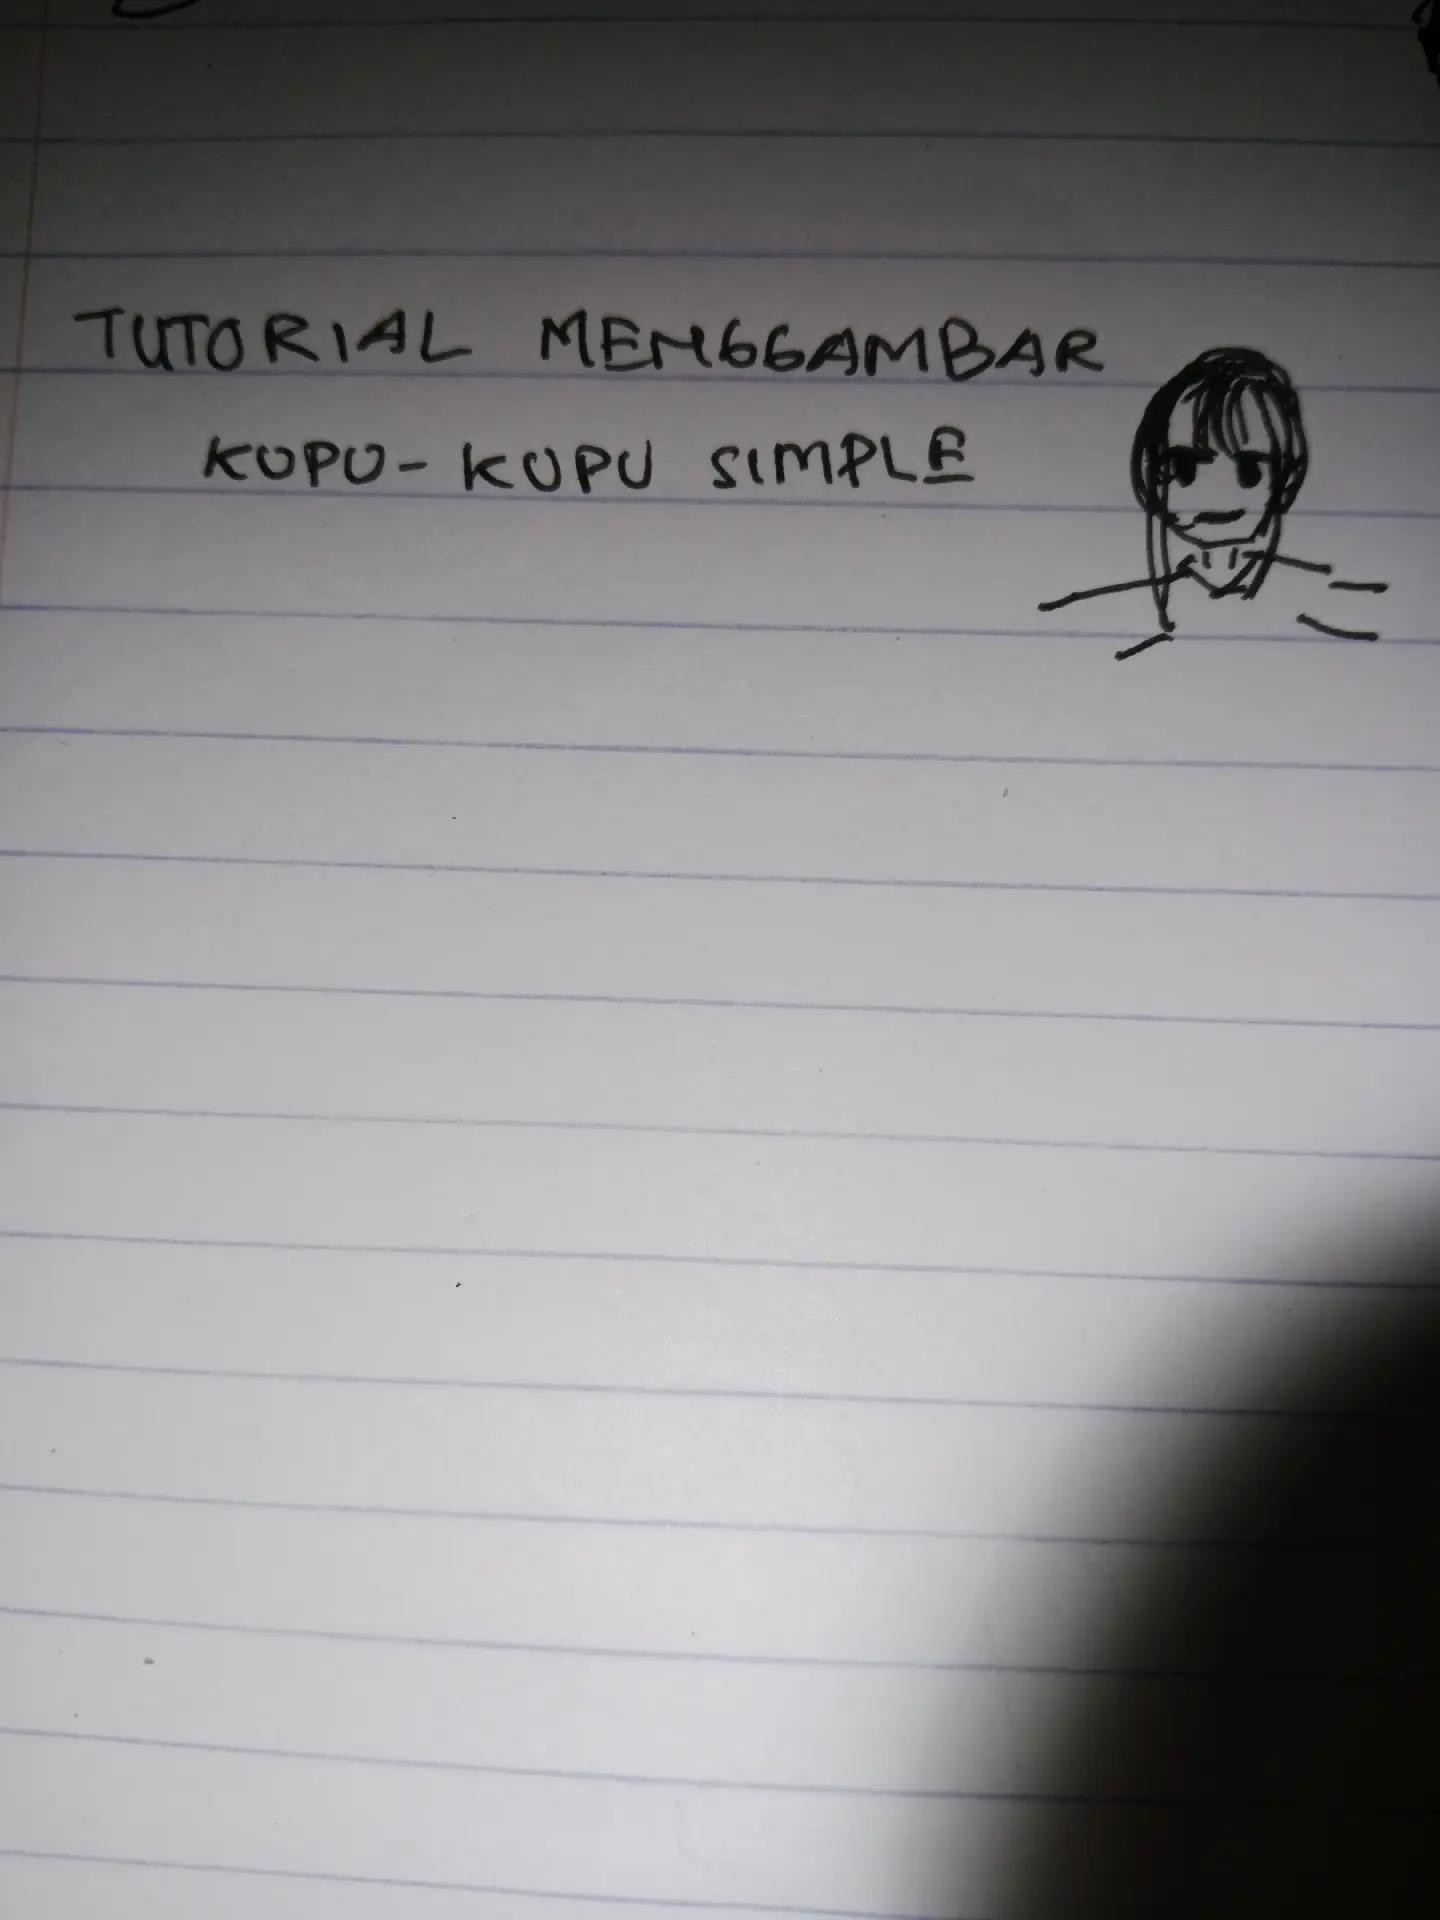 TUTORIAL MENGGAMBAR
KUPU-KUPU SIMPLE